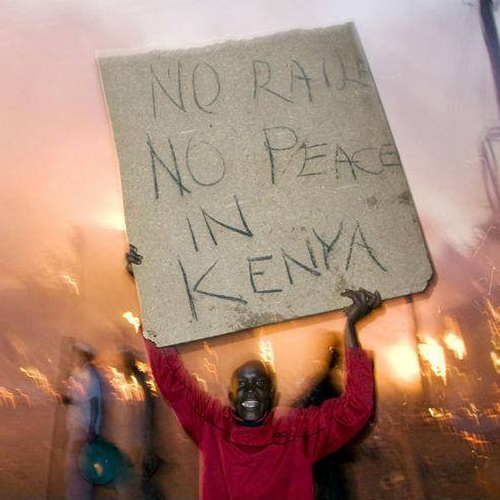 NO RAILA
NO PEACE
IN
KENYA